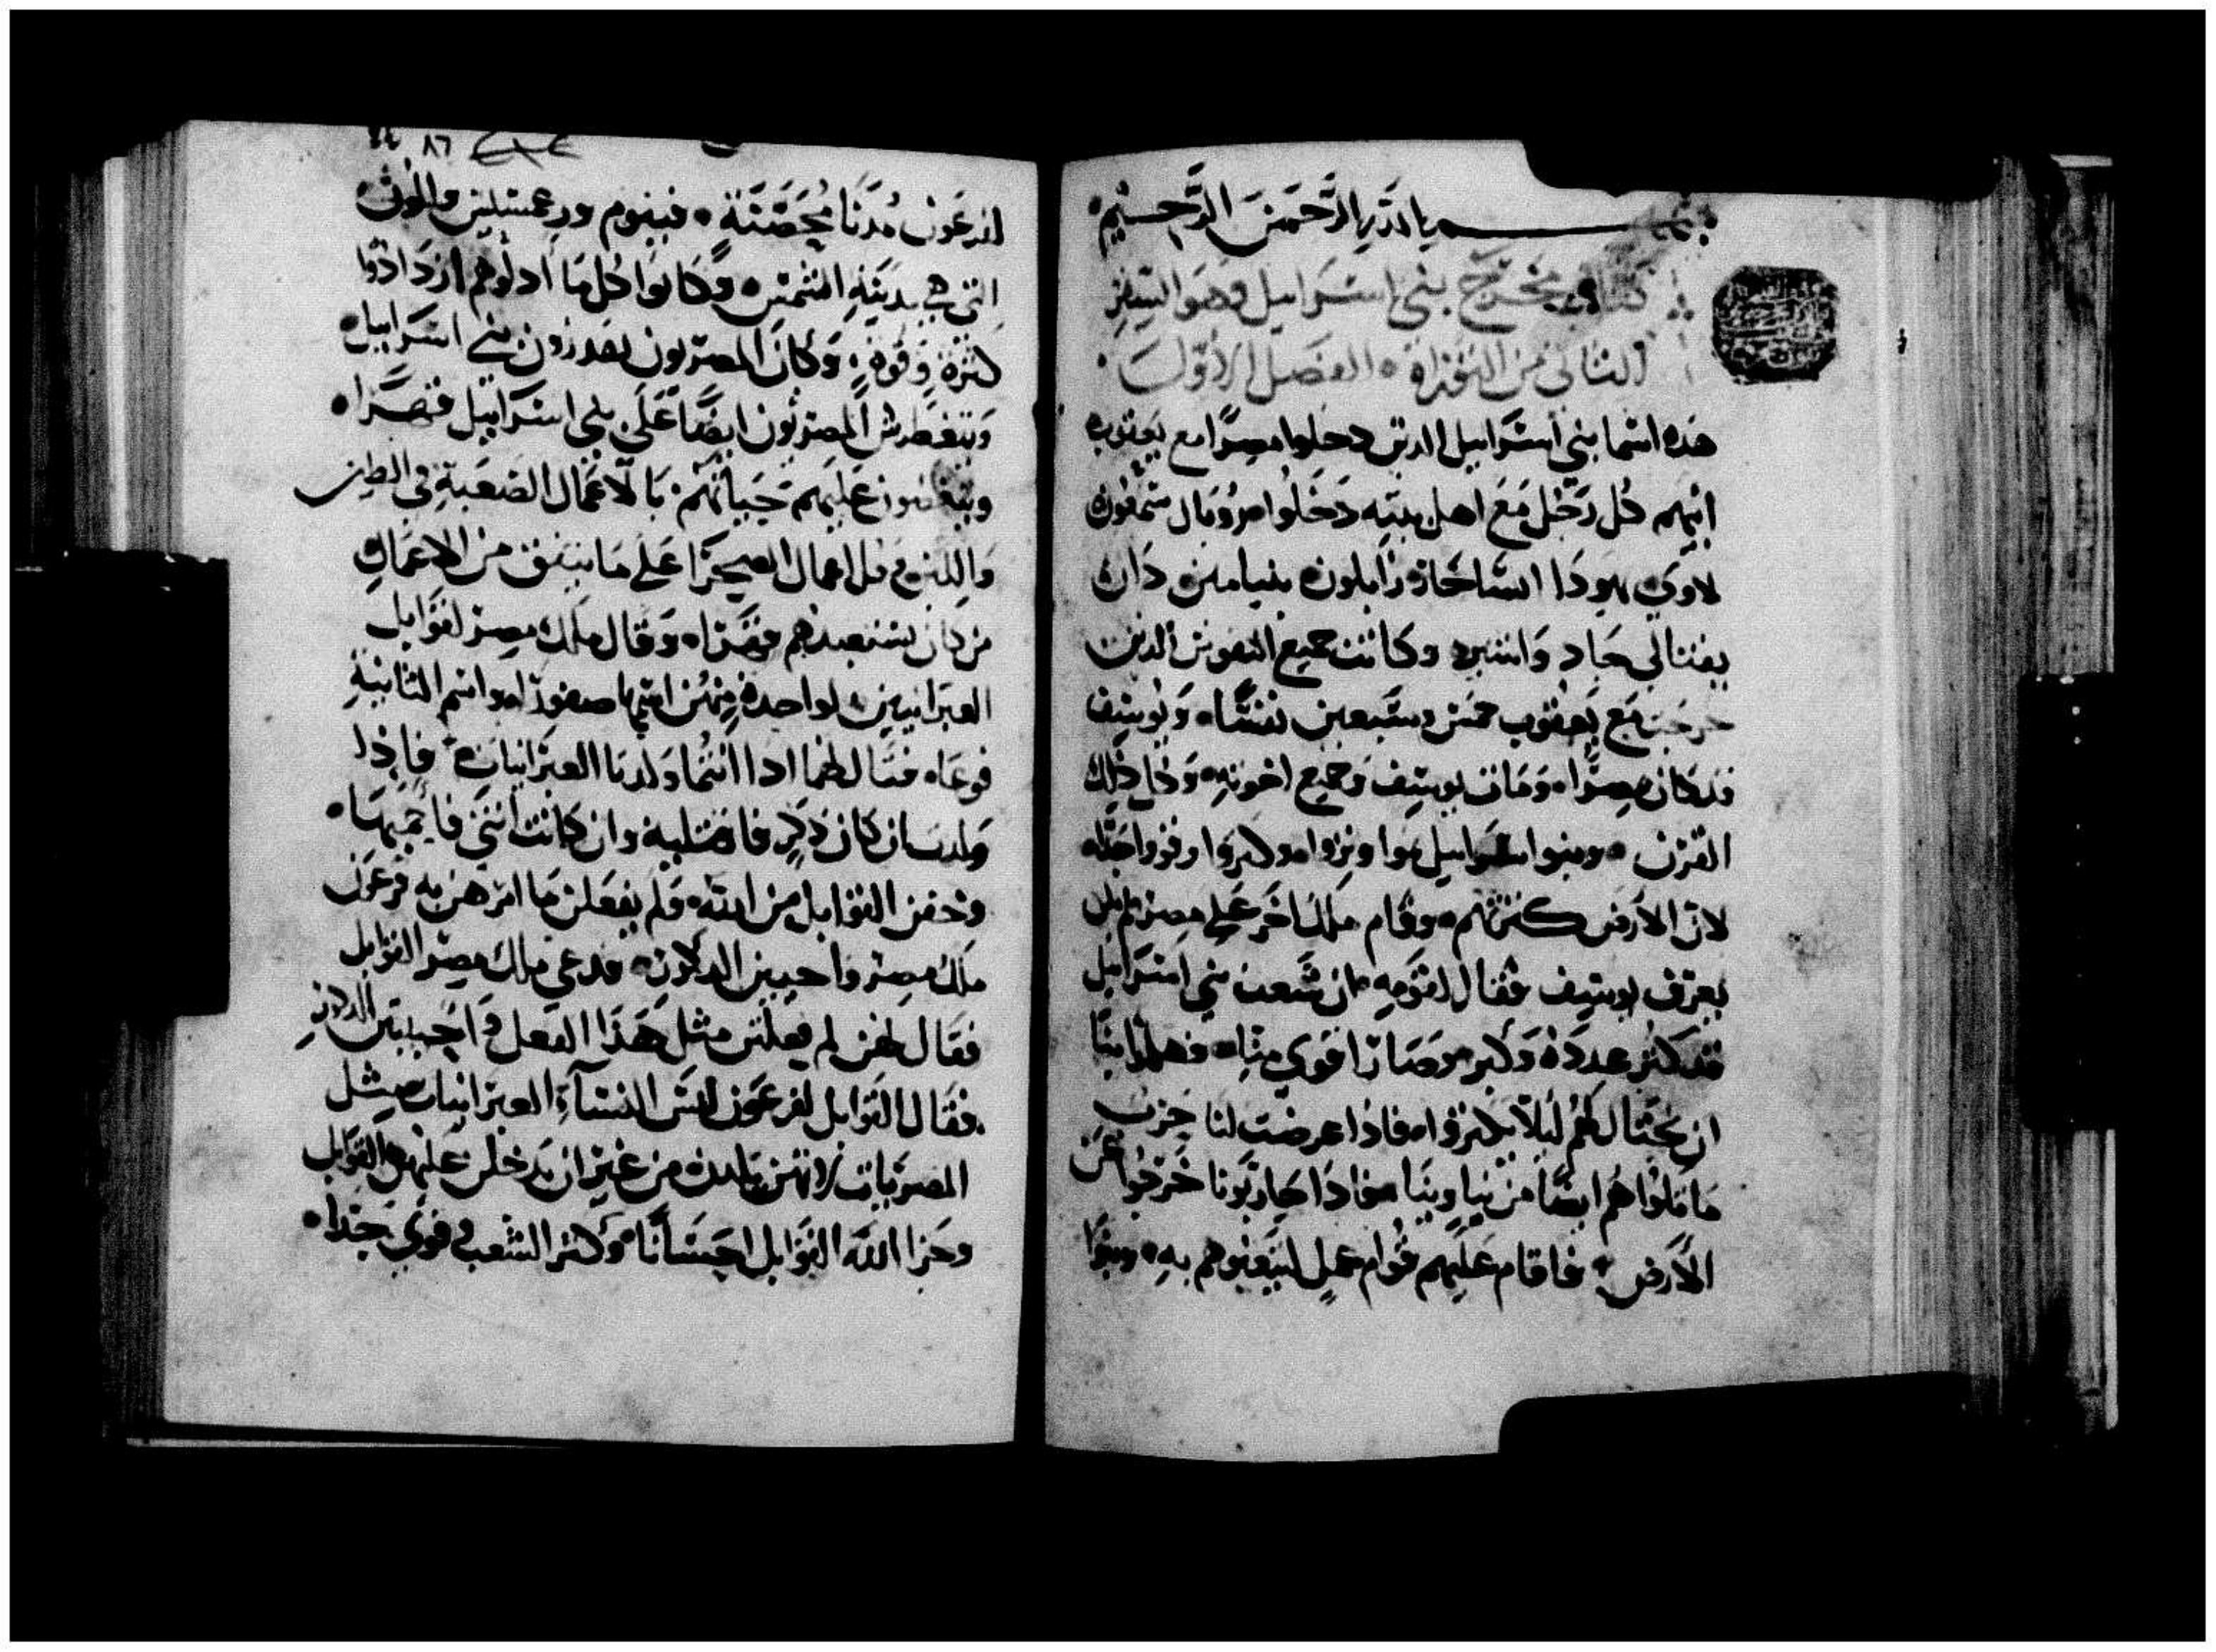 بسم الله الرحمن الرحيم
كتاب مخرج بني اسرايل وهو السفر
الثاني من التوراة الفصل الاول
هذه اسما بني اسرايل الدين دخلوا مصرا مع يعقوب
ابيهم كل رجل مع اهل بيته دخلوا روبال شمعون
لاوي يهودا اساخار زابلون بنيامين دان
يفتالي جاد واشير وكانت جميع النفوس الدين
خرجت مع يعقوب خمس وسبعين نفسا ويوسف
قد كان مصرا ومات يوسف وجميع اخوته وكل ذلك
القرن وبنوا اسرايل نموا ونزوا وكبروا وقووا جدا
لان الارض كثرتهم وقام ملك اخر على مصر لم يكن
يعرف يوسف فقال لقومه ان شعب بني اسرايل
قد كثر عدده وكبر وصار اقوى منا فهلموا بنا
ان نحتال لهم ليلا يكثروا فاذا عرضت لنا حرب
مالوا هم ايضا من بيننا فاذا حاربونا خرجوا من
الارض فاقام عليهم قوام عمل ليتعبوهم به وبنوا
لفرعون مدنا محصنة فيثوم ورعمسيس واون
التي هي مدينة الشمس وكانوا كل ما ادلوهم ازدادوا
كثرة وقوة وكان المصريون يقدرون بني اسرايل
ويتغطرش المصريون ايضا على بني اسرايل قهرا
وينغصون عليهم حياتهم بالاعمال الصعبة في الطين
واللبن وكل اعمال الصحرا على ما يتفق من الاعمال
من كان يستعبدهم قهرا وقال ملك مصر لقوابل
العبرانيين لواحدة منهن اسمها صفورا واسم الثانية
فوعا فقال لهما ادا انتما ولدتما العبرانيات فاذا
ولدت ان كان ذكر فاقتليه وان كانت انثى فاحييها
وخفن القوابل من الله ولم يفعلن ما امرهن به فرعون
ملك مصر واحيين الدكور فدعى ملك مصر القوابل
فقال لهن لم فعلتن مثل هذا الفعل واحييتن الدكور
فقال القوابل لفرعون ليس النسآء العبرانيات مثل
المصريات لانهن يلدن من غير ان يدخلن عليهن القوابل
وجزا الله القوابل احسانا وكثر الشعب وقوي جدا